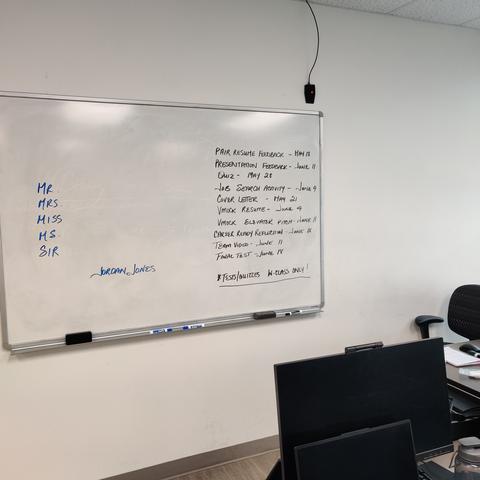 MR.
MRS.
MISS
MS.
SIR
JORDAN JONES
PAIR RESUME FEEDBACK - MAY 18
PRESENTATION FEEDBACK - JUNE 11
QUIZ - MAY 28
JOB SEARCH ACTIVITY - JUNE 9
COVER LETTER - MAY 21
VMOCK RESUME - JUNE 4
VMOCK ELEVATOR PITCH - JUNE 11
CAREER READY REFLECTION - JUNE 18
TEAM VIDEO - JUNE 11
FINAL TEST - JUNE 18
* TESTS/QUIZZES IN-CLASS ONLY!